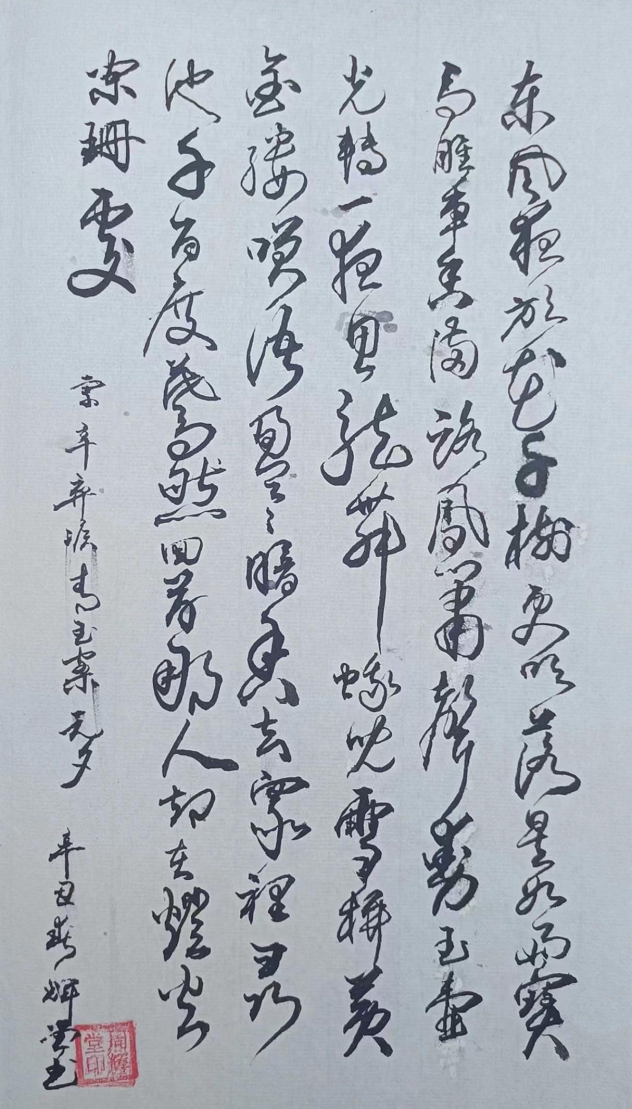 东风夜放花千树更吹落星如雨寶
马雕車香满路鳳箫聲動玉壶
光轉一夜鱼龙舞蛾儿雪柳黄
金缕笑语盈々暗香去眾裡寻
他千百度蓦然回首那人却在燈火
阑珊处
录辛弃疾青玉案元夕
辛丑春輝堂书